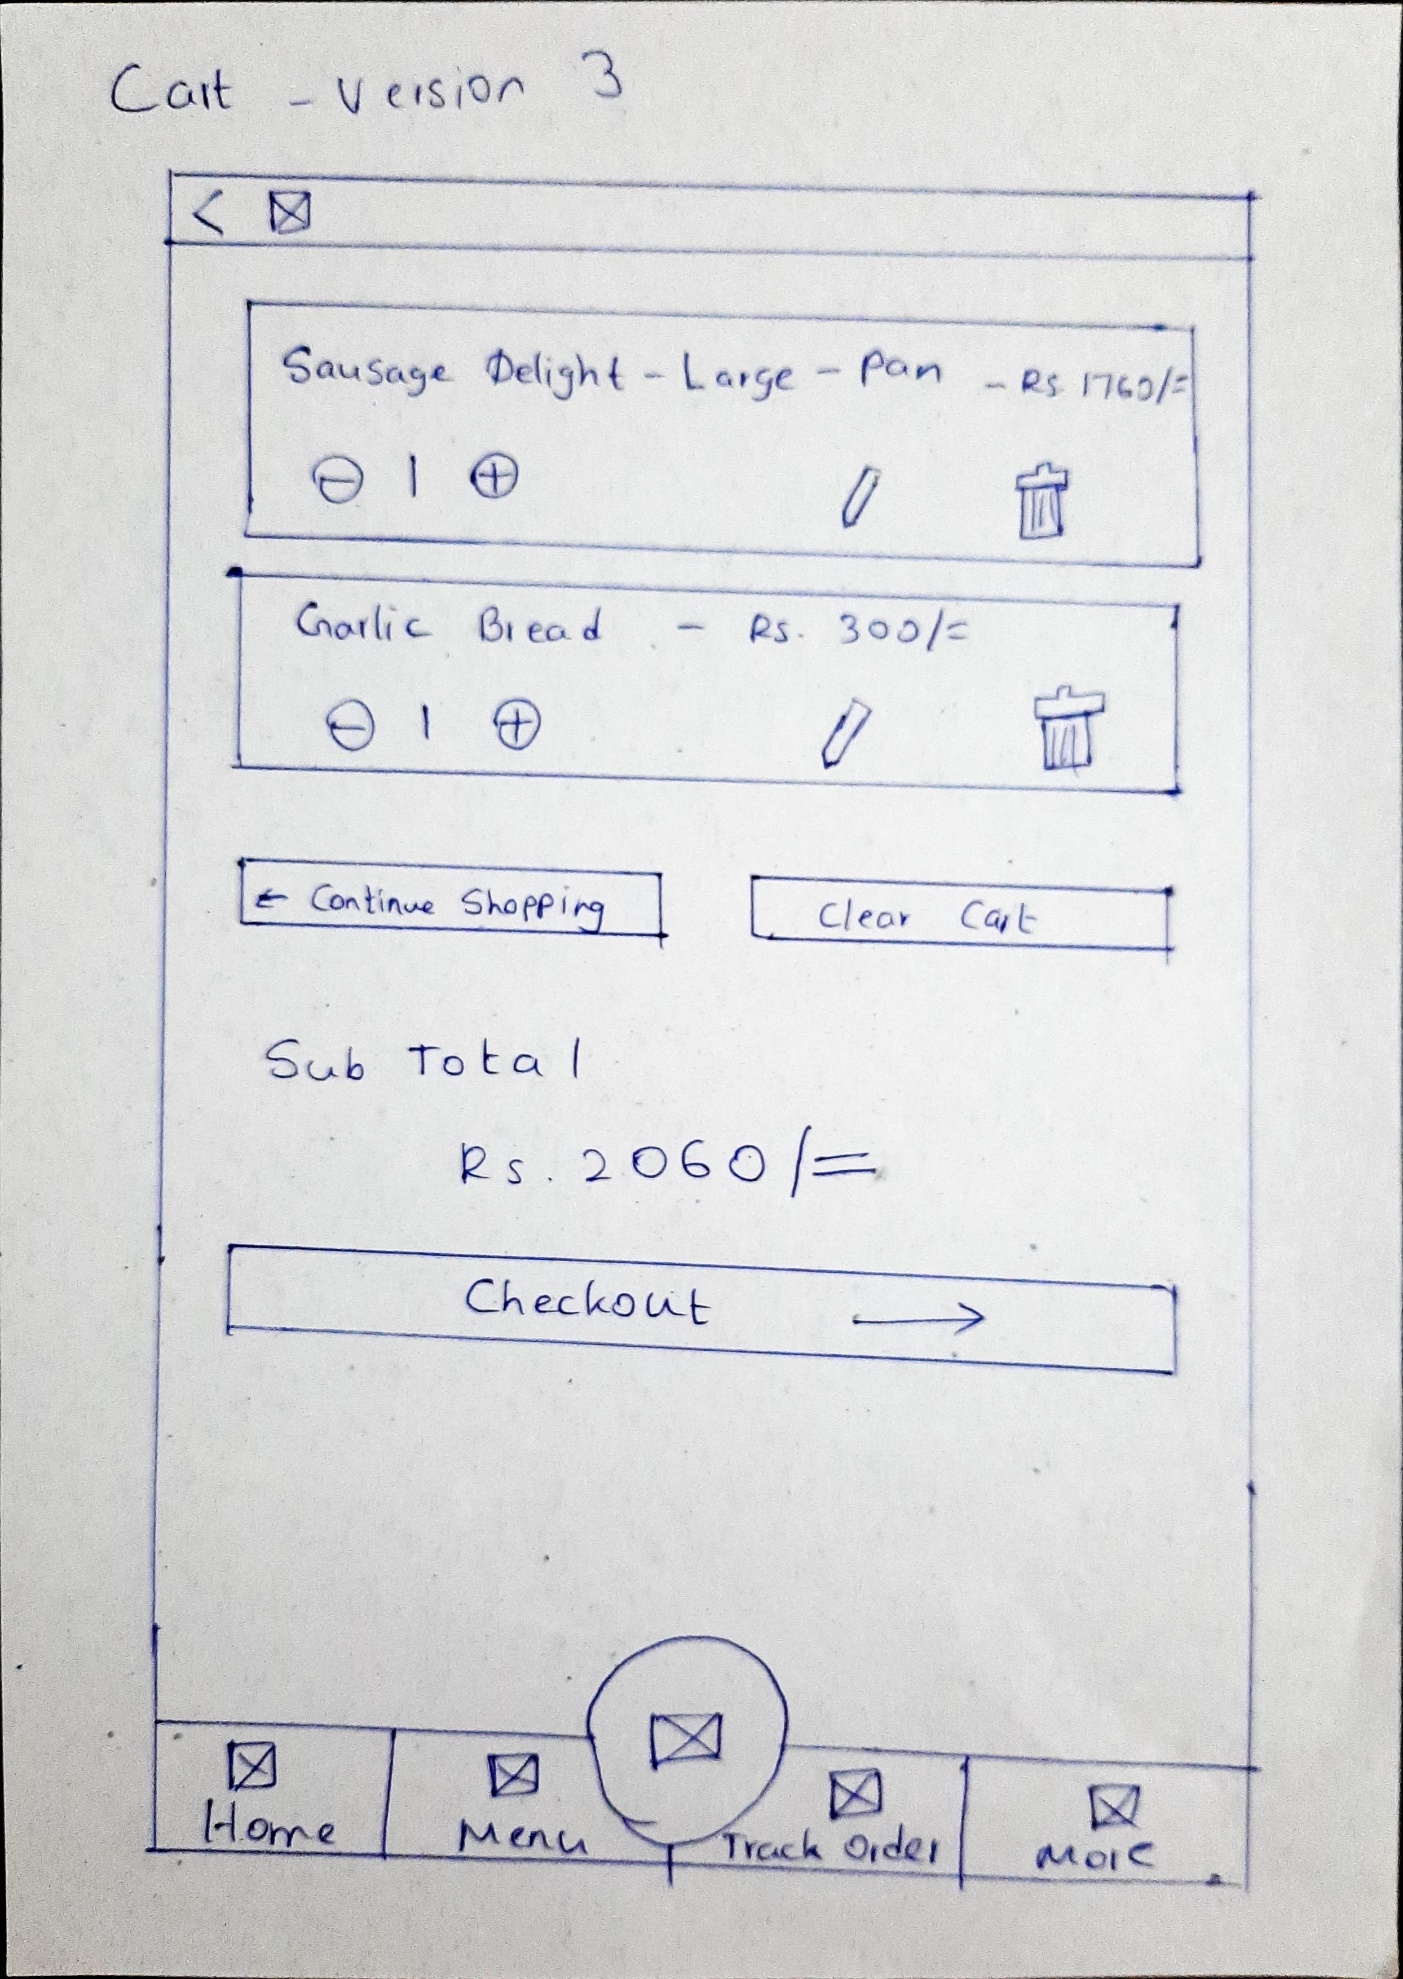 Cart - Version 3
<
Sausage Delight - Large - Pan - Rs 1760/=
- 1 +
Garlic Bread - Rs. 300/=
- 1 +
← Continue Shopping
Clear Cart
Sub Total
Rs. 2060/=
Checkout →
Home Menu Track Order More